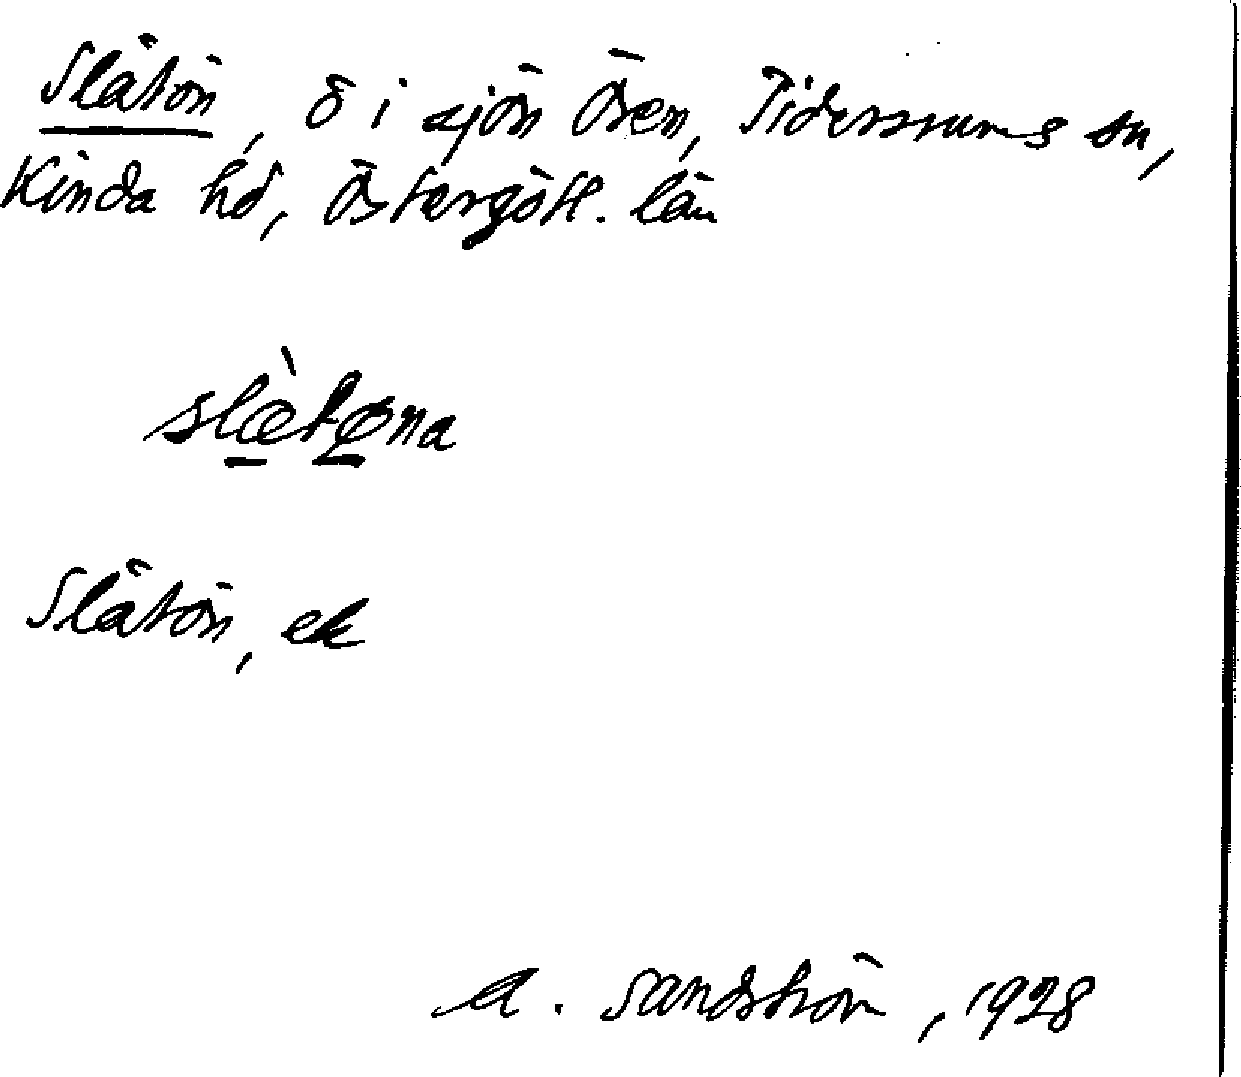 Slätön, ö i sjön Ören, Tidersrums sn,
Kinda hd, Östergötl. län
slætøna
Slätön, ek
A. Sandström, 1928